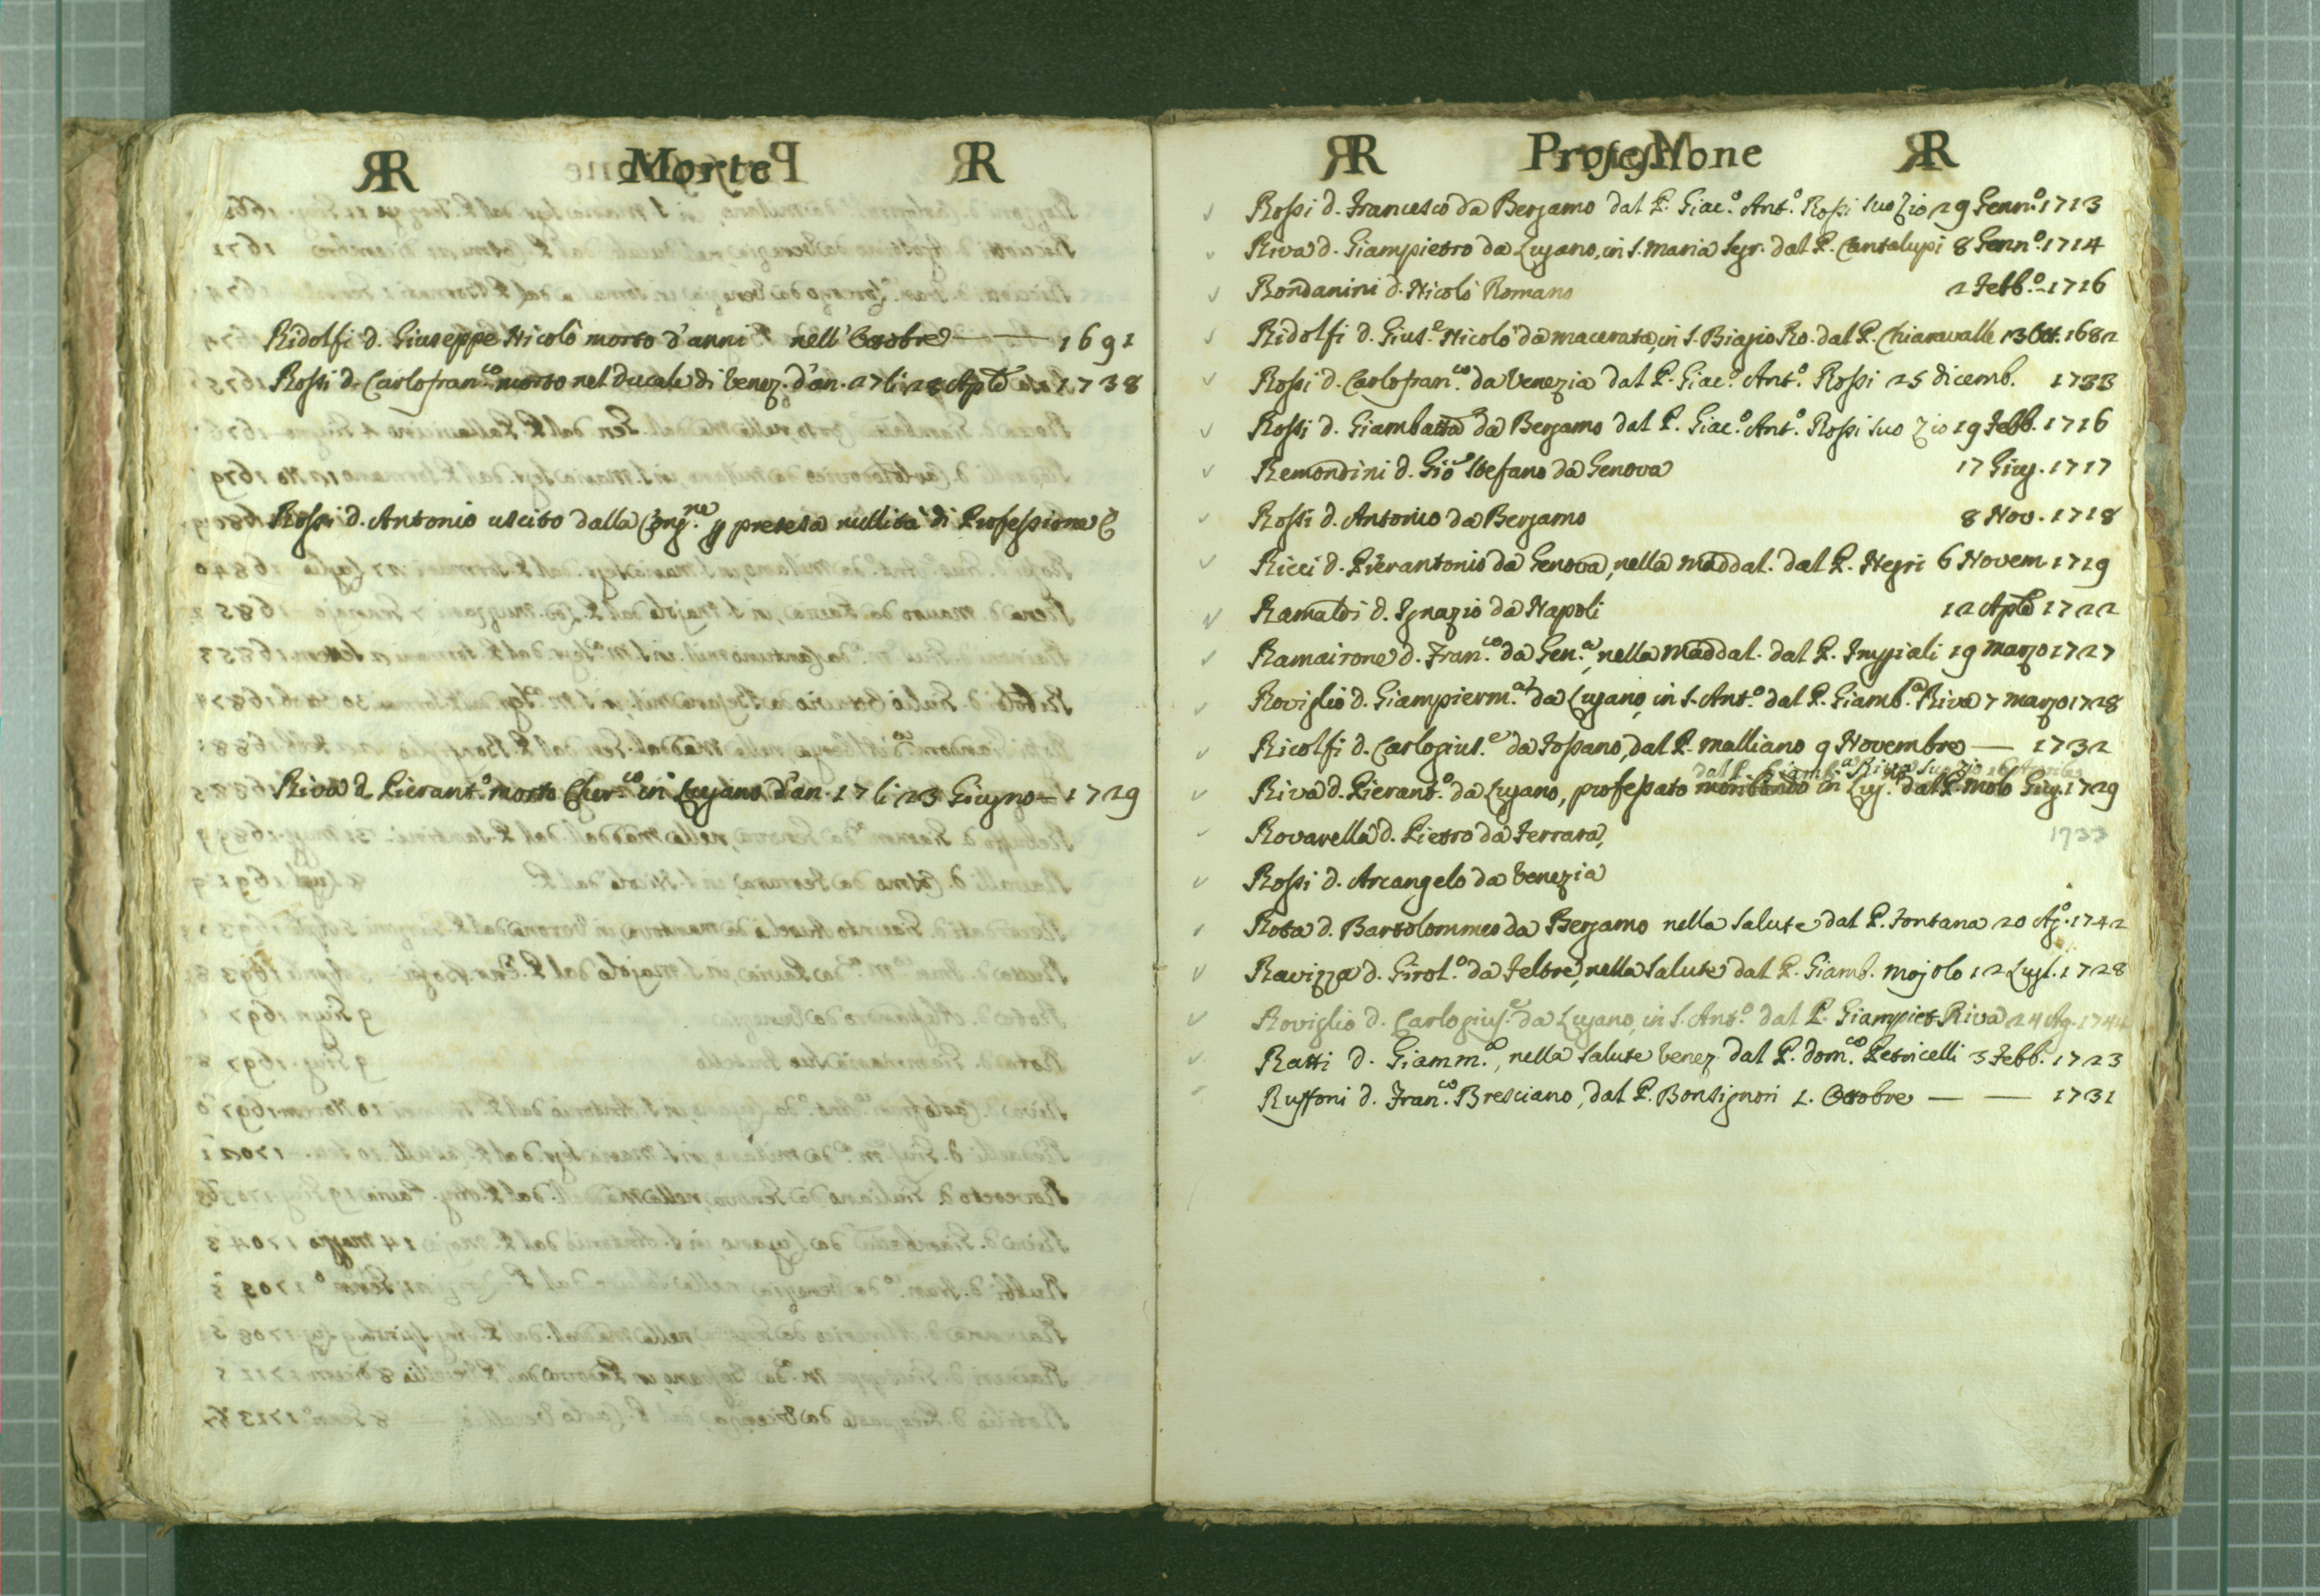 R Morte R
Ridolfi d. Giuseppe Nicolò morto d'anni nell' Ottobre — 1691
Rossi d. Carlofran.co morto nel Ducale di Venez. d'an. 27 li 28 Aple 1738
Rossi d. Antonio uscito dalla Cong.ne p pretesa nullità di Professione
Riva d. Pierant.o morto Cher.co in Lugano d'an. 17 li 23 Giugno — 1729
R Professione R
Rossi d. Francesco da Bergamo dal P. Giac.o Ant.o Rossi suo Zio 29 Genn.o 1713
Riva d. Giampietro da Lugano, in S. Maria Segr. dal P. Cantalupi 8 Genn.o 1714
Rondanini d. Nicolò Romano 2 Febb.o 1716
Ridolfi d. Gius.e Nicolò da Macerata, in S. Biagio Ro. dal P. Chiaravalle 13 Ott. 1682
Rossi d. Carlofran.co da Venezia dal P. Giac.o Ant.o Rossi 25 dicemb. 1733
Rossi d. Giambatta da Bergamo dal P. Giac.o Ant.o Rossi suo Zio 19 Febb. 1716
Remondini d. Gio Stefano da Genova 17 Giug. 1717
Rossi d. Antonio da Bergamo 8 Nov. 1718
Ricci d. Pierantonio da Genova, nella Maddal. dal P. Negri 6 Novem 1719
Ramaldi d. Ignazio da Napoli 12 Aple 1722
Ramairone d. Fran.co da Gen.a, nella Maddal. dal P. Impiali 19 Marzo 1727
Roviglio d. Giampierm.a da Lugano, in S. Ant.o dal P. Giamb.a Riva 7 Marzo 1728
Ricolfi d. Carlogius.e da Fossano, dal P. Malliano 9 Novembre — 1732
dal P. Giamb.a Riva suo Zio
Riva d. Pierant.o da Lugano, professato moribondo in Lug.o dal P. Molo Giug. 1729
Rovarella d. Pietro da Ferrara, 1733
Rossi d. Arcangelo da Venezia
Rota d. Bartolommeo da Bergamo nella Salute dal P. Fontana 20 Ag.o 1742
Ravizza d. Girol.o da Feltre, nella Salute dal P. Giamb. Mojolo 12 Lugl. 1728
Roviglio d. Carlogius.e da Lugano, in S. Ant.o dal P. Giampiet. Riva 24 Ag. 1744
Ratti d. Giamm.a, nella Salute Venez. dal P. Dom.co Petricelli 3 Febb. 1723
Ruffoni d. Fran.co Bresciano, dal P. Bonsignori 1. Ottobre — — 1731